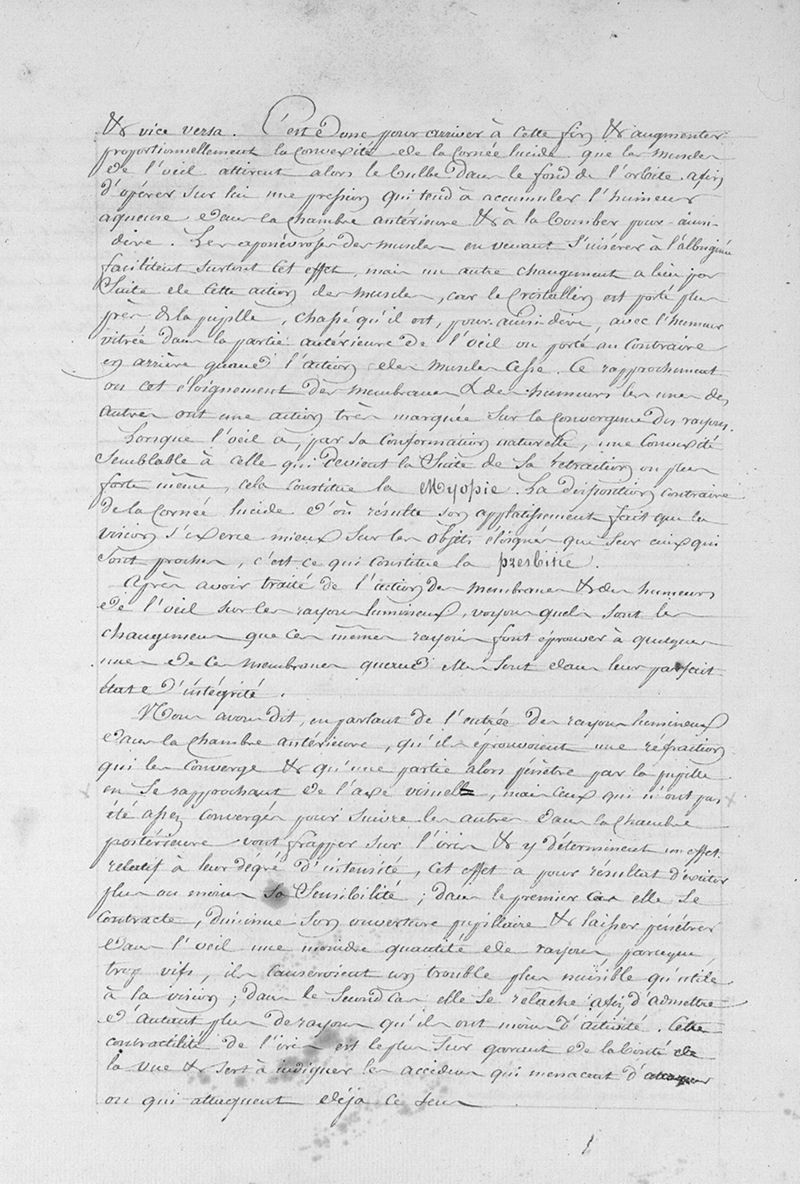 & vice versa. C'est donc pour arriver à cette fin & augmenter
proportionnellement la convexité de la Cornée lucide que les muscles
de l'oeil attirent alors le bulbe dans le fond de l'orbite afin
d'opérer sur lui une pression qui tend à accumuler l'humeur
aqueuse dans la chambre antérieure & à la bomber pour-ainsi-
dire. Les aponévroses des muscles en venant s'insérer à l'albuginée
facilitent surtout cet effet, mais un autre changement a lieu par
Suite de cette action des muscles, car le Cristallin est porté plus
près de la pupille, chassé qu'il est, pour-ainsi-dire, avec l'humeur
vitrée dans la partie antérieure de l'oeil ou porté au contraire
en arrière quand l'action des muscles cesse. Ce rapprochement
ou cet éloignement des membranes & des humeurs les unes des
autres ont une action très marquée sur la convergence des rayons.
Lorsque l'oeil a, par sa conformation naturelle, une convexité
semblable à celle qui devient la Suite de sa retraction ou plus
forte même, cela constitue la Myopie. La disposition contraire
de la Cornée lucide d'où résulte son applatissement fait que la
vision s'exerce mieux sur les objets éloignés que sur ceux qui
sont proches, c'est ce qui constitue la presbitie.
Après avoir traité de l'action des membranes & des humeurs
de l'oeil sur les rayons lumineux, voyons quels sont les
changemens que ces mêmes rayons font éprouver à quelques
unes de ces membranes quand elles sont dans leur parfait
état d'intégrité.
Nous avons dit, en parlant de l'entrée des rayons lumineux
dans la chambre antérieure, qu'ils éprouvoient une réfraction
qui les converge & qu'une partie alors pénètre par la pupille
en se rapprochant de l'axe visuel, mais ceux qui n'ont pas
été assez convergés pour suivre les autres dans la chambre
postérieure vont frapper sur l'iris & y déterminent un effet
relatif à leur dégré d'intensité, cet effet a pour résultat d'exciter
plus ou moins sa Sensibilité; dans le premier cas elle se
contracte, diminue son ouverture pupillaire & laisser pénétrer
dans l'oeil une moindre quantité de rayons, parceque,
trop vifs, ils causeroient un trouble plus nuisible qu'utile
à la vision; dans le Second cas elle se relache afin d'admettre
d'autant plus de rayons qu'ils ont moins d'activité. Cette
contractilité de l'iris est le plus sur garant de la bonté de
la vue & sert à indiquer les accidens qui menacent
ou qui attaquent déjà ce sens